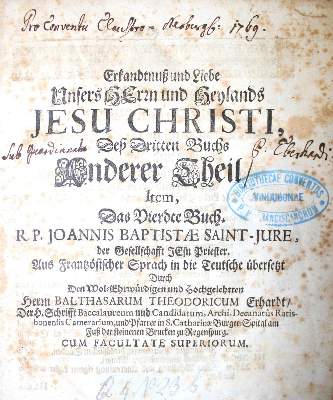 Pro Conventu 1769.
Erkandtnuß und Liebe
Unsers HErrn und Heylands
JESU CHRISTI,
Deß Dritten Buchs
Anderer Theil/
Item,
Das Vierdte Buch.
R. P. JOANNIS BAPTISTÆ SAINT-JURE,
der Gesellschafft JEsu Priester.
Aus Frantzösischer Sprach in die Teutsche übersetzt
Durch
Den Wol-Ehrwürdigen und Hochgelehrten
Herrn BALTHASARUM THEODORICUM Erhardt/
Der H. Schrifft Baccalaureum und Candidatum, Archi-Decanatûs Ratis-
bonensis Camerarium, und Pfarrer in S. Catharinæ Burger-Spital am
Fuß der steinenen Brucken zu Regenspurg.
CUM FACULTATE SUPERIORUM.